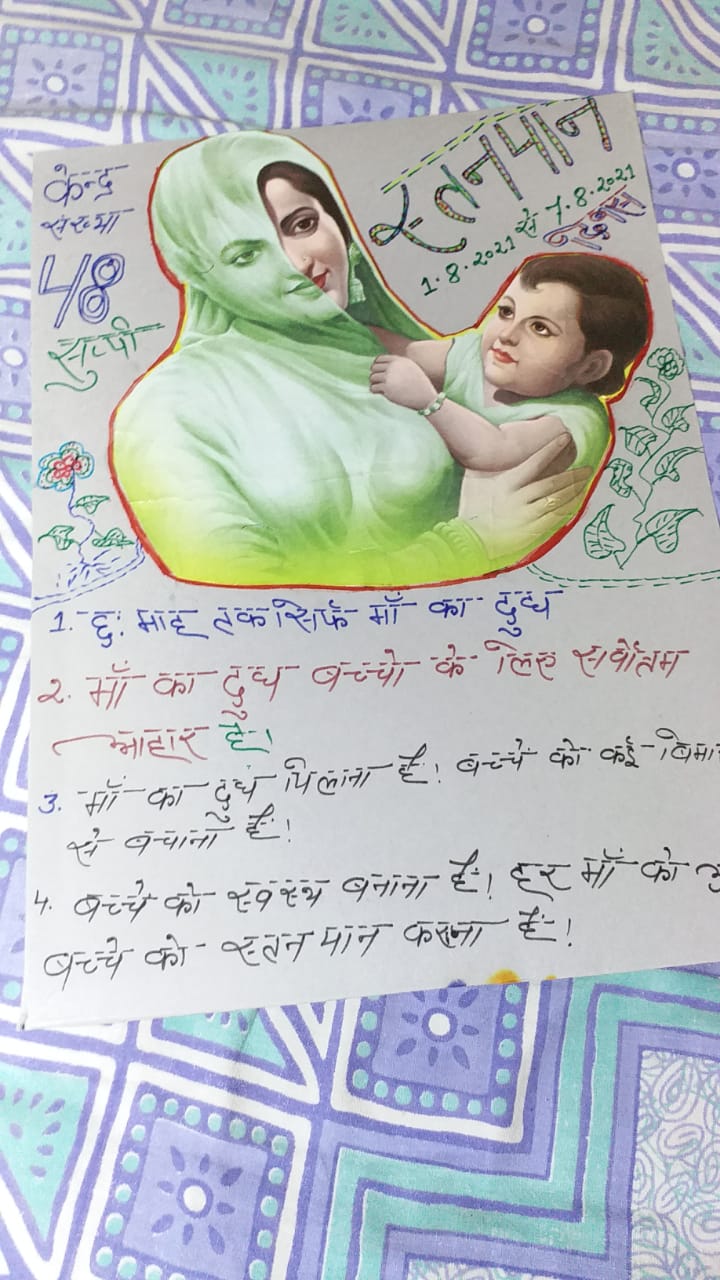 केन्द्र
संख्या
48
सुप्पी
स्तनपान
1.8.2021 से 7.8.2021
1. छः माह तक सिर्फ माँ का दुध
2. माँ का दुध बच्चो के लिए सर्वोतम
आहार है।
3. माँ का दुध पिलाना है! बच्चे को कई
से बचाना है!
4. बच्चे को स्वस्थ बनाना है! हर माँ को
बच्चे को स्तनपान कराना है!